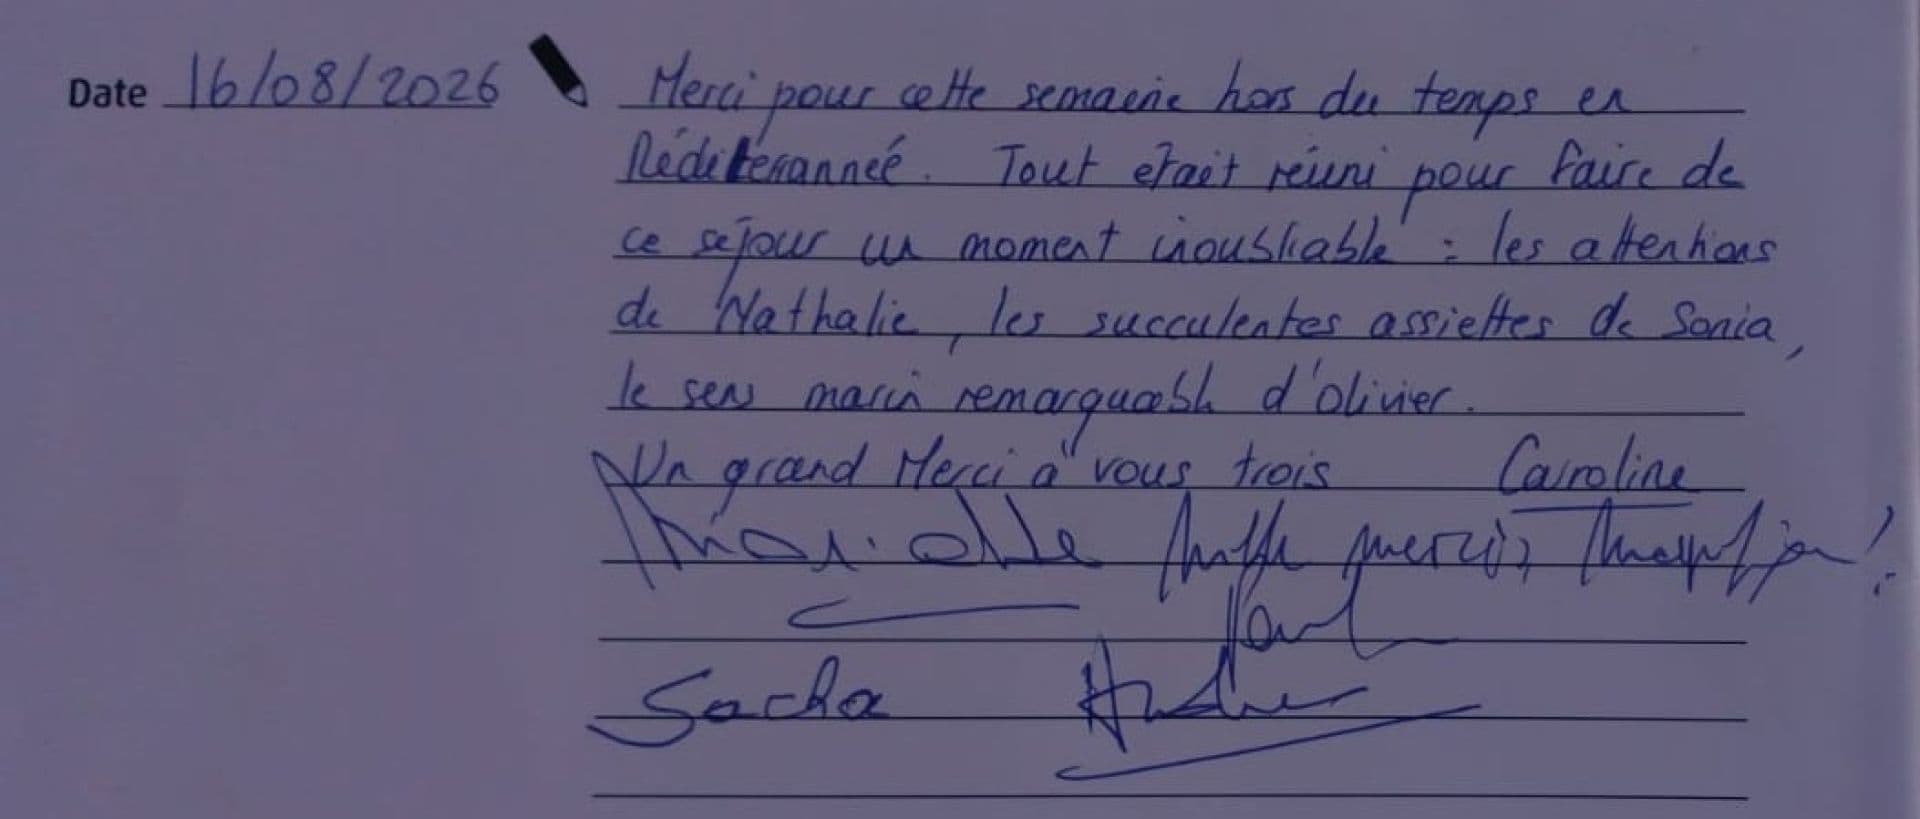 Date 16/08/2026
Merci pour cette semaine hors du temps en
Méditerannée. Tout était réuni pour faire de
ce séjour un moment inoubliable : les attentions
de Nathalie, les succulentes assiettes de Sonia,
le sens marin remarquable d'Olivier.
Un grand Merci à vous trois Caroline
Marielle mille mercis,
Paul
Sacha